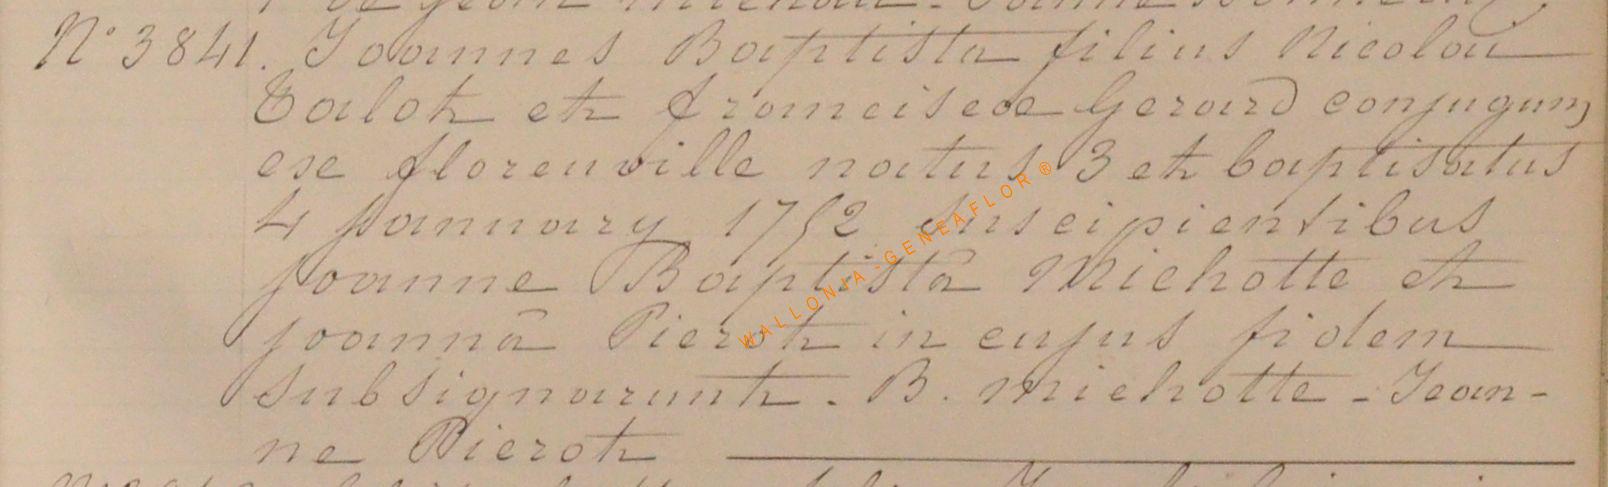 N° 3841. Joannes Baptista filius Nicolai
Talot et franciscae Gerard conjugum
exe florenville natus 3 et baptisatus
4 january 1752 suscipientibus
joanne Baptistâ Michotte et
joannâ Pierot in cujus fidem
subsignarunt. B. michotte - Jean-
ne Pierot
WALLONIA-GENEAFLOR ®